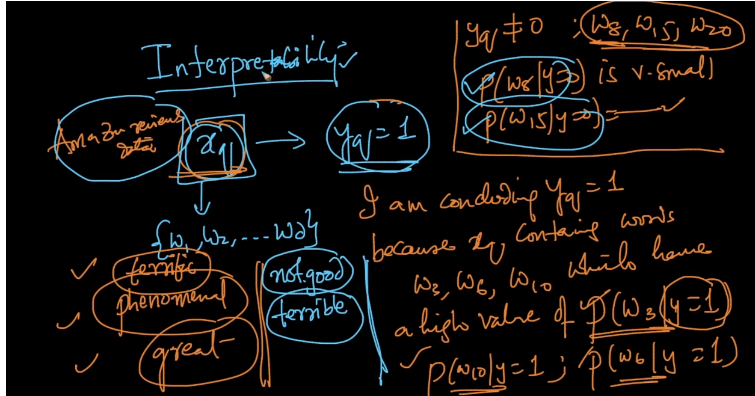 Interpretability
Amazon reviews
data
xq → yq = 1
{w1, w2, ---- wd}
terrific
phenomenal
great
not good
terrible
yq ≠ 0 ; w8, w15, w20
p(w8|y=0) is v.small
p(w15|y=0) =
I am concluding yq = 1
because xq contains words
w3, w6, w10 which have
a high value of p(w3|y=1)
p(w10|y=1 ; p(w6|y=1)